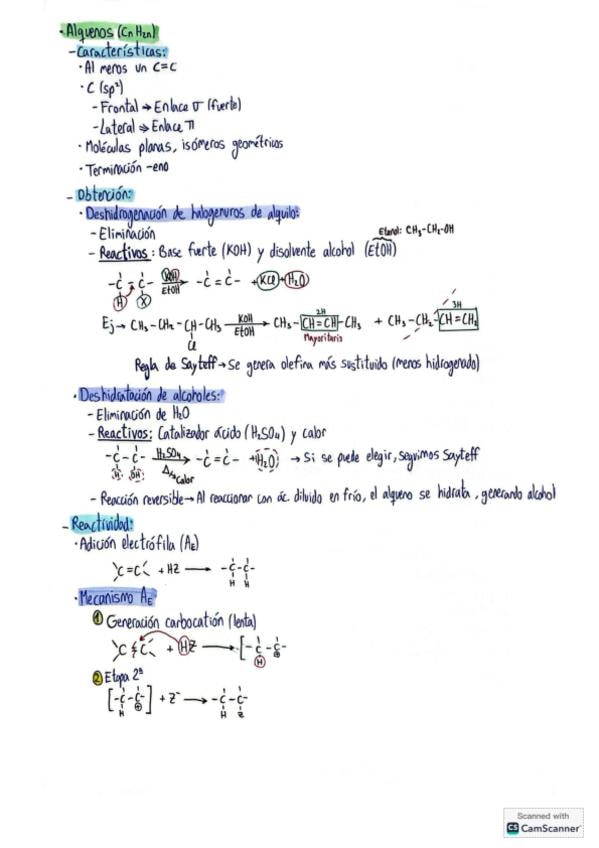 · Alquenos (CnH2n)
- Características:
· Al menos un C=C
· C (sp²)
- Frontal → Enlace σ (fuerte)
- Lateral ⇒ Enlace π
· Moléculas planas, isómeros geométricos
· Terminación -eno
- Obtención:
· Deshidrogenación de halogenuros de alquilo:
Etanol: CH3-CH2-OH
- Eliminación
- Reactivos: Base fuerte (KOH) y disolvente alcohol (EtOH)
-C-C- KOH EtOH → -C=C- + KCl + H2O
H X
2H 3H
Ej → CH3-CH2-CH-CH3 KOH EtOH → CH3-CH=CH-CH3 + CH3-CH2-CH=CH2
Cl Mayoritario
Regla de Sayteff → Se genera olefina más sustituido (menos hidrogenado)
· Deshidratación de alcoholes:
- Eliminación de H2O
- Reactivos: Catalizador ácido (H2SO4) y calor
-C-C- H2SO4 → -C=C- + H2O → Si se puede elegir, seguimos Sayteff
H OH Δ → calor
- Reacción reversible → Al reaccionar con ác. diluido en frío, el alqueno se hidrata, generando alcohol
- Reactividad:
· Adición electrófila (AE)
C=C + HZ → -C-C-
H H
· Mecanismo AE
1 Generación carbocatión (lenta)
C=C + HZ → [-C-C-
H ⊕
2 Etapa 2ª
[-C-C-] + Z⁻ → -C-C-
H ⊕ H Z
Scanned with
CS CamScanner